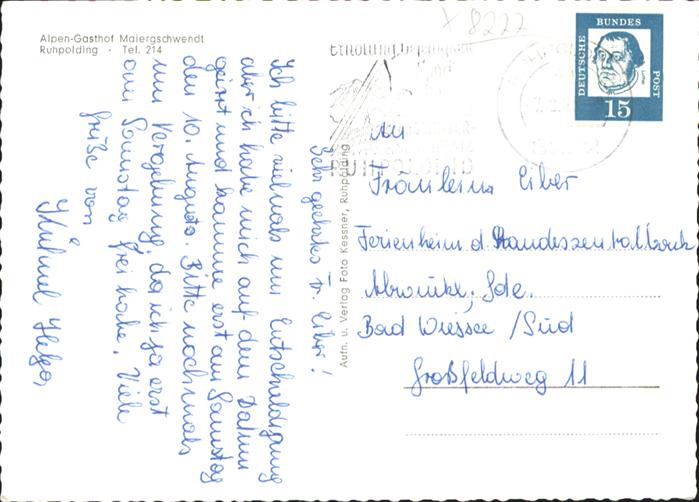 Alpen-Gasthof Maiergschwendt
Ruhpolding · Tel. 214
Sehr geehrtes Fr. Eiber!
Ich bitte vielmals um Entschuldigung
aber ich habe mich auf dem Datum
geirrt und komme erst am Samstag
den 10. August. Bitte nochmals
um Vergebung, da ich ja erst
am Samstag frei habe. Viele
Grüße von
Helga
Aufn. u. Verlag Foto Kessner, Ruhpolding
8222
RUHPOLDING
DEUTSCHE BUNDES POST
15
An
Fräulein Eiber
Ferienheim d. Landeszentralbank
Abwinkl; Gde.
Bad Wiessee / Süd
Großfeldweg 11